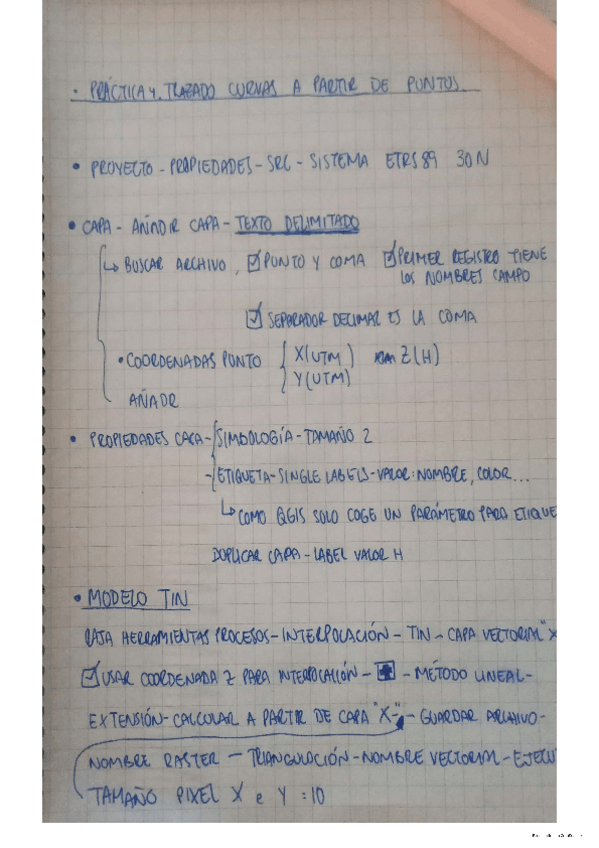 • PRÁCTICA 4. TRAZADO CURVAS A PARTIR DE PUNTOS
• PROYECTO - PROPIEDADES - SRC - SISTEMA ETRS89 30N
• CAPA - AÑADIR CAPA - TEXTO DELIMITADO
↳ BUSCAR ARCHIVO, ☑ PUNTO Y COMA ☑ PRIMER REGISTRO TIENE
LOS NOMBRES CAMPO
☑ SEPARADOR DECIMAL ES LA COMA
• COORDENADAS PUNTO { X(UTM) Z(H)
Y(UTM)
AÑADIR
• PROPIEDADES CAPA - SIMBOLOGÍA - TAMAÑO 2
- ETIQUETA - SINGLE LABELS - VALOR: NOMBRE, COLOR...
↳ COMO QGIS SOLO COGE UN PARÁMETRO PARA ETIQUE
DUPLICAR CAPA - LABEL VALOR H
• MODELO TIN
CAJA HERRAMIENTAS PROCESOS - INTERPOLACIÓN - TIN - CAPA VECTORIAL "X
☑ USAR COORDENADA Z PARA INTERPOLACIÓN - ✚ - MÉTODO LINEAL -
EXTENSIÓN - CALCULAR A PARTIR DE CAPA "X" - GUARDAR ARCHIVO -
NOMBRE RASTER - TRIANGULACIÓN - NOMBRE VECTORIAL - EJECU
TAMAÑO PIXEL X e Y : 10